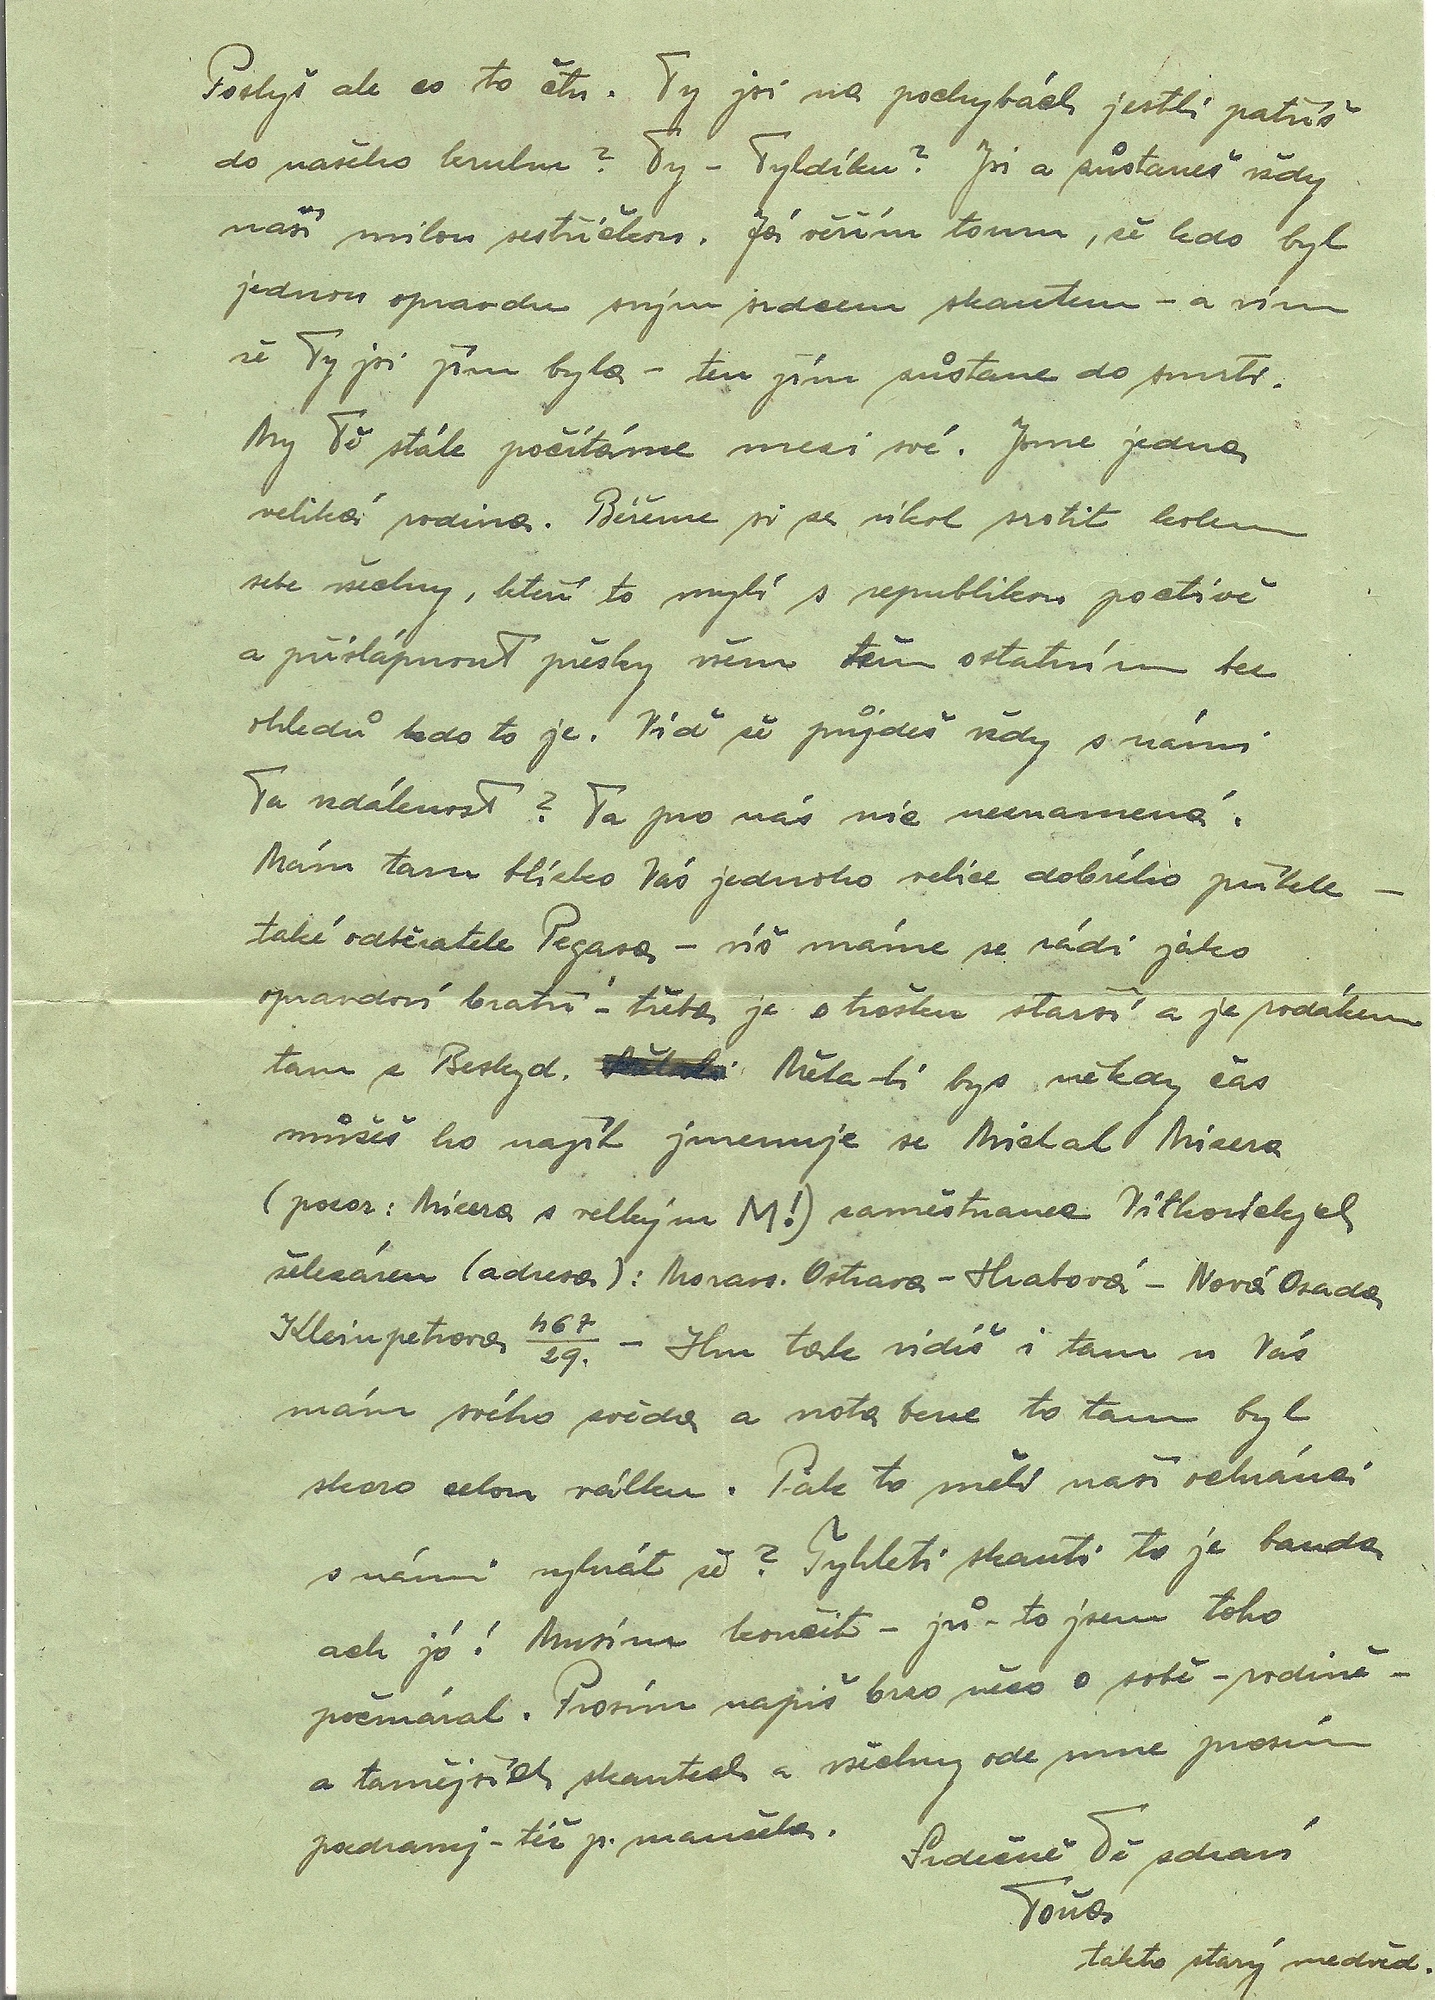 Poslyš ale co to čtu. Ty jsi na pochybách jestli patříš
do našeho kruhu? Ty – Tyldíku? Jsi a zůstaneš vždy
naší milou sestřičkou. Já věřím tomu, že kdo byl
jednou opravdu svým srdcem skautem – a vím
že Ty jsi jím byla – ten jím zůstane do smrti.
My Tě stále počítáme mezi své. Jsme jedna
veliká rodina. Béřeme si za úkol srotit kolem
sebe všechny, kteří to myslí s republikou poctivě
a přišlápnout pěsky všem těm ostatním bez
ohledů kdo to je. Viď že půjdeš vždy s námi
Ta vzdálenost? Ta pro nás nic neznamená.
Mám tam blízko Vás jednoho velice dobrého přítele –
také odběratele Pegasa – víš máme se rádi jako
opravdoví bratři – třeba je o trošku starší a je rodákem
tam z Beskyd. Měla-li bys někdy čas
můžeš ho najít jmenuje se Michal Micera
(pozor: Micera s velkým M!) zaměstnanec Vítkovických
železáren (adresa): Morav. Ostrava – Hrabová – Nová Osada
Kleinpetrova 467/29. – Hm tak vidíš i tam u Vás
mám svého zvěda a nota bene to tam byl
skoro celou válku. Pak to měli naši ochránci
s námi vyhrát že? Tyhleti skauti to je banda
ach jó! Musím končit – jů – to jsem toho
počmáral. Prosím napiš brzo něco o sobě – rodině –
a tamějších skautech a všechny ode mne prosím
pozdravuj – též p. manžela.
Srdečně Tě zdraví
Toňa
takto starý medvěd.